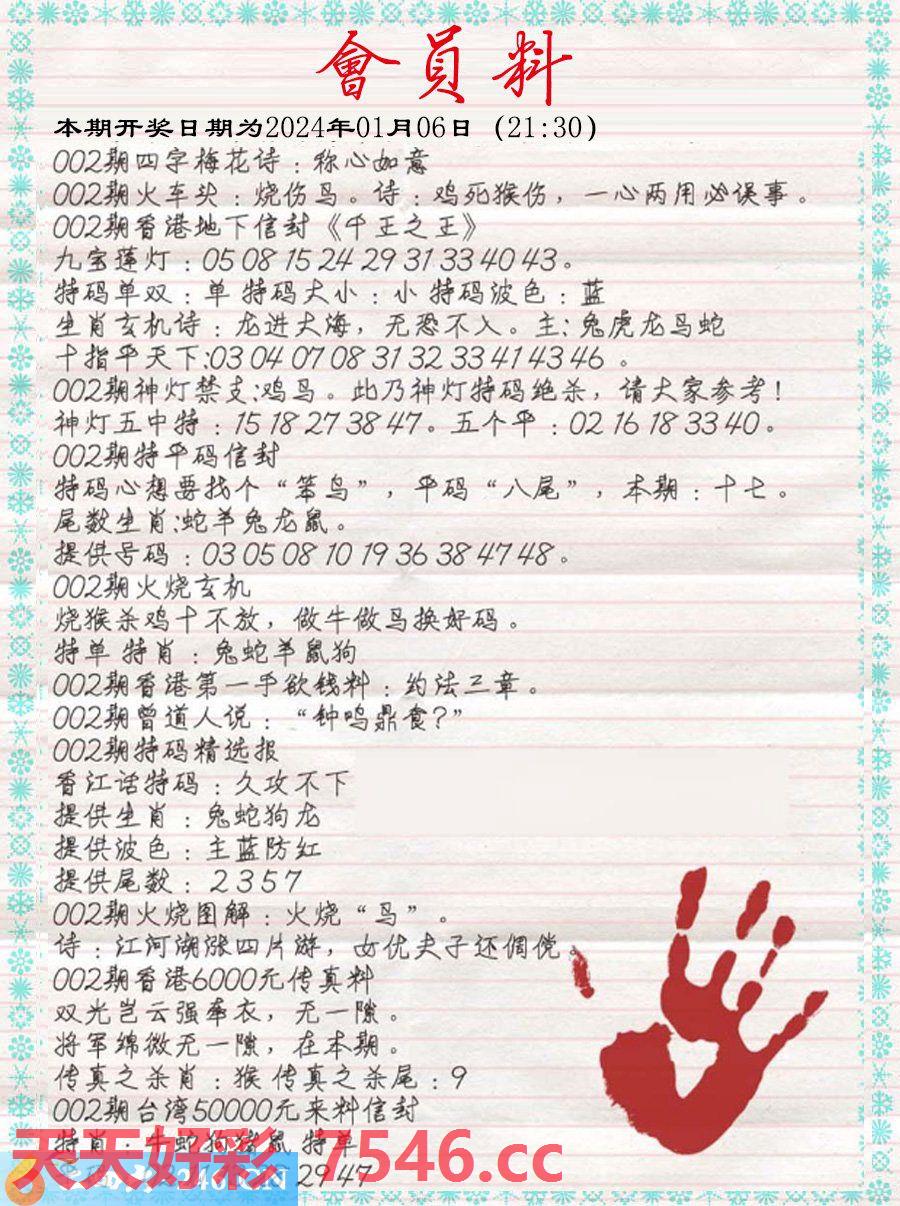 會員料
本期开奖日期为2024年01月06日 (21:30)
002期四字梅花诗：称心如意
002期火车头：烧伤鸟。诗：鸡死猴伤，一心两用必误事。
002期香港地下信封《千王之王》
九宝莲灯：05 08 15 24 29 31 33 40 43。
特码单双：单 特码大小：小 特码波色：蓝
生肖玄机诗：龙进大海，无恐不入。主:兔虎龙马蛇
十指平天下:03 04 07 08 31 32 33 41 43 46 。
002期神灯禁支:鸡鸟。此乃神灯特码绝杀，请大家参考！
神灯五中特：15 18 27 38 47。五个平：02 16 18 33 40。
002期特平码信封
特码心想要找个“笨鸟”，平码“八尾”，本期：十七。
尾数生肖:蛇羊兔龙鼠。
提供号码：03 05 08 10 19 36 38 47 48。
002期火烧玄机
烧猴杀鸡十不放，做牛做马换好码。
特单 特肖：兔蛇羊鼠狗
002期香港第一手欲钱料：约法三章。
002期曾道人说：“钟鸣鼎食？”
002期特码精选报
香江话特码：久攻不下
提供生肖：兔蛇狗龙
提供波色：主蓝防红
提供尾数：２３５７
002期火烧图解：火烧“鸟”。
诗：江河湖涨四片游，女优夫子还倜傥。
002期香港6000元传真料
双光岂云强牵衣，无一隙。
将军绵微无一隙，在本期。
传真之杀肖：猴 传真之杀尾：9
002期台湾50000元来料信封
特肖：牛蛇狗猪鼠 特单
29 47
天天好彩 7546.cc
246.CN